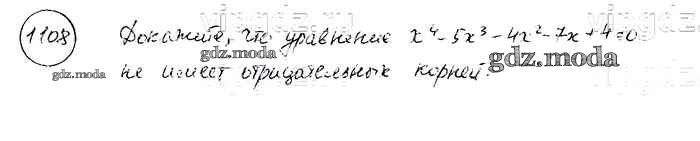 1108 Докажите, что уравнение x⁴-5x³-4x²-7x+4=0
не имеет отрицательных корней.
gdz.moda
gdz.moda
gdz.moda